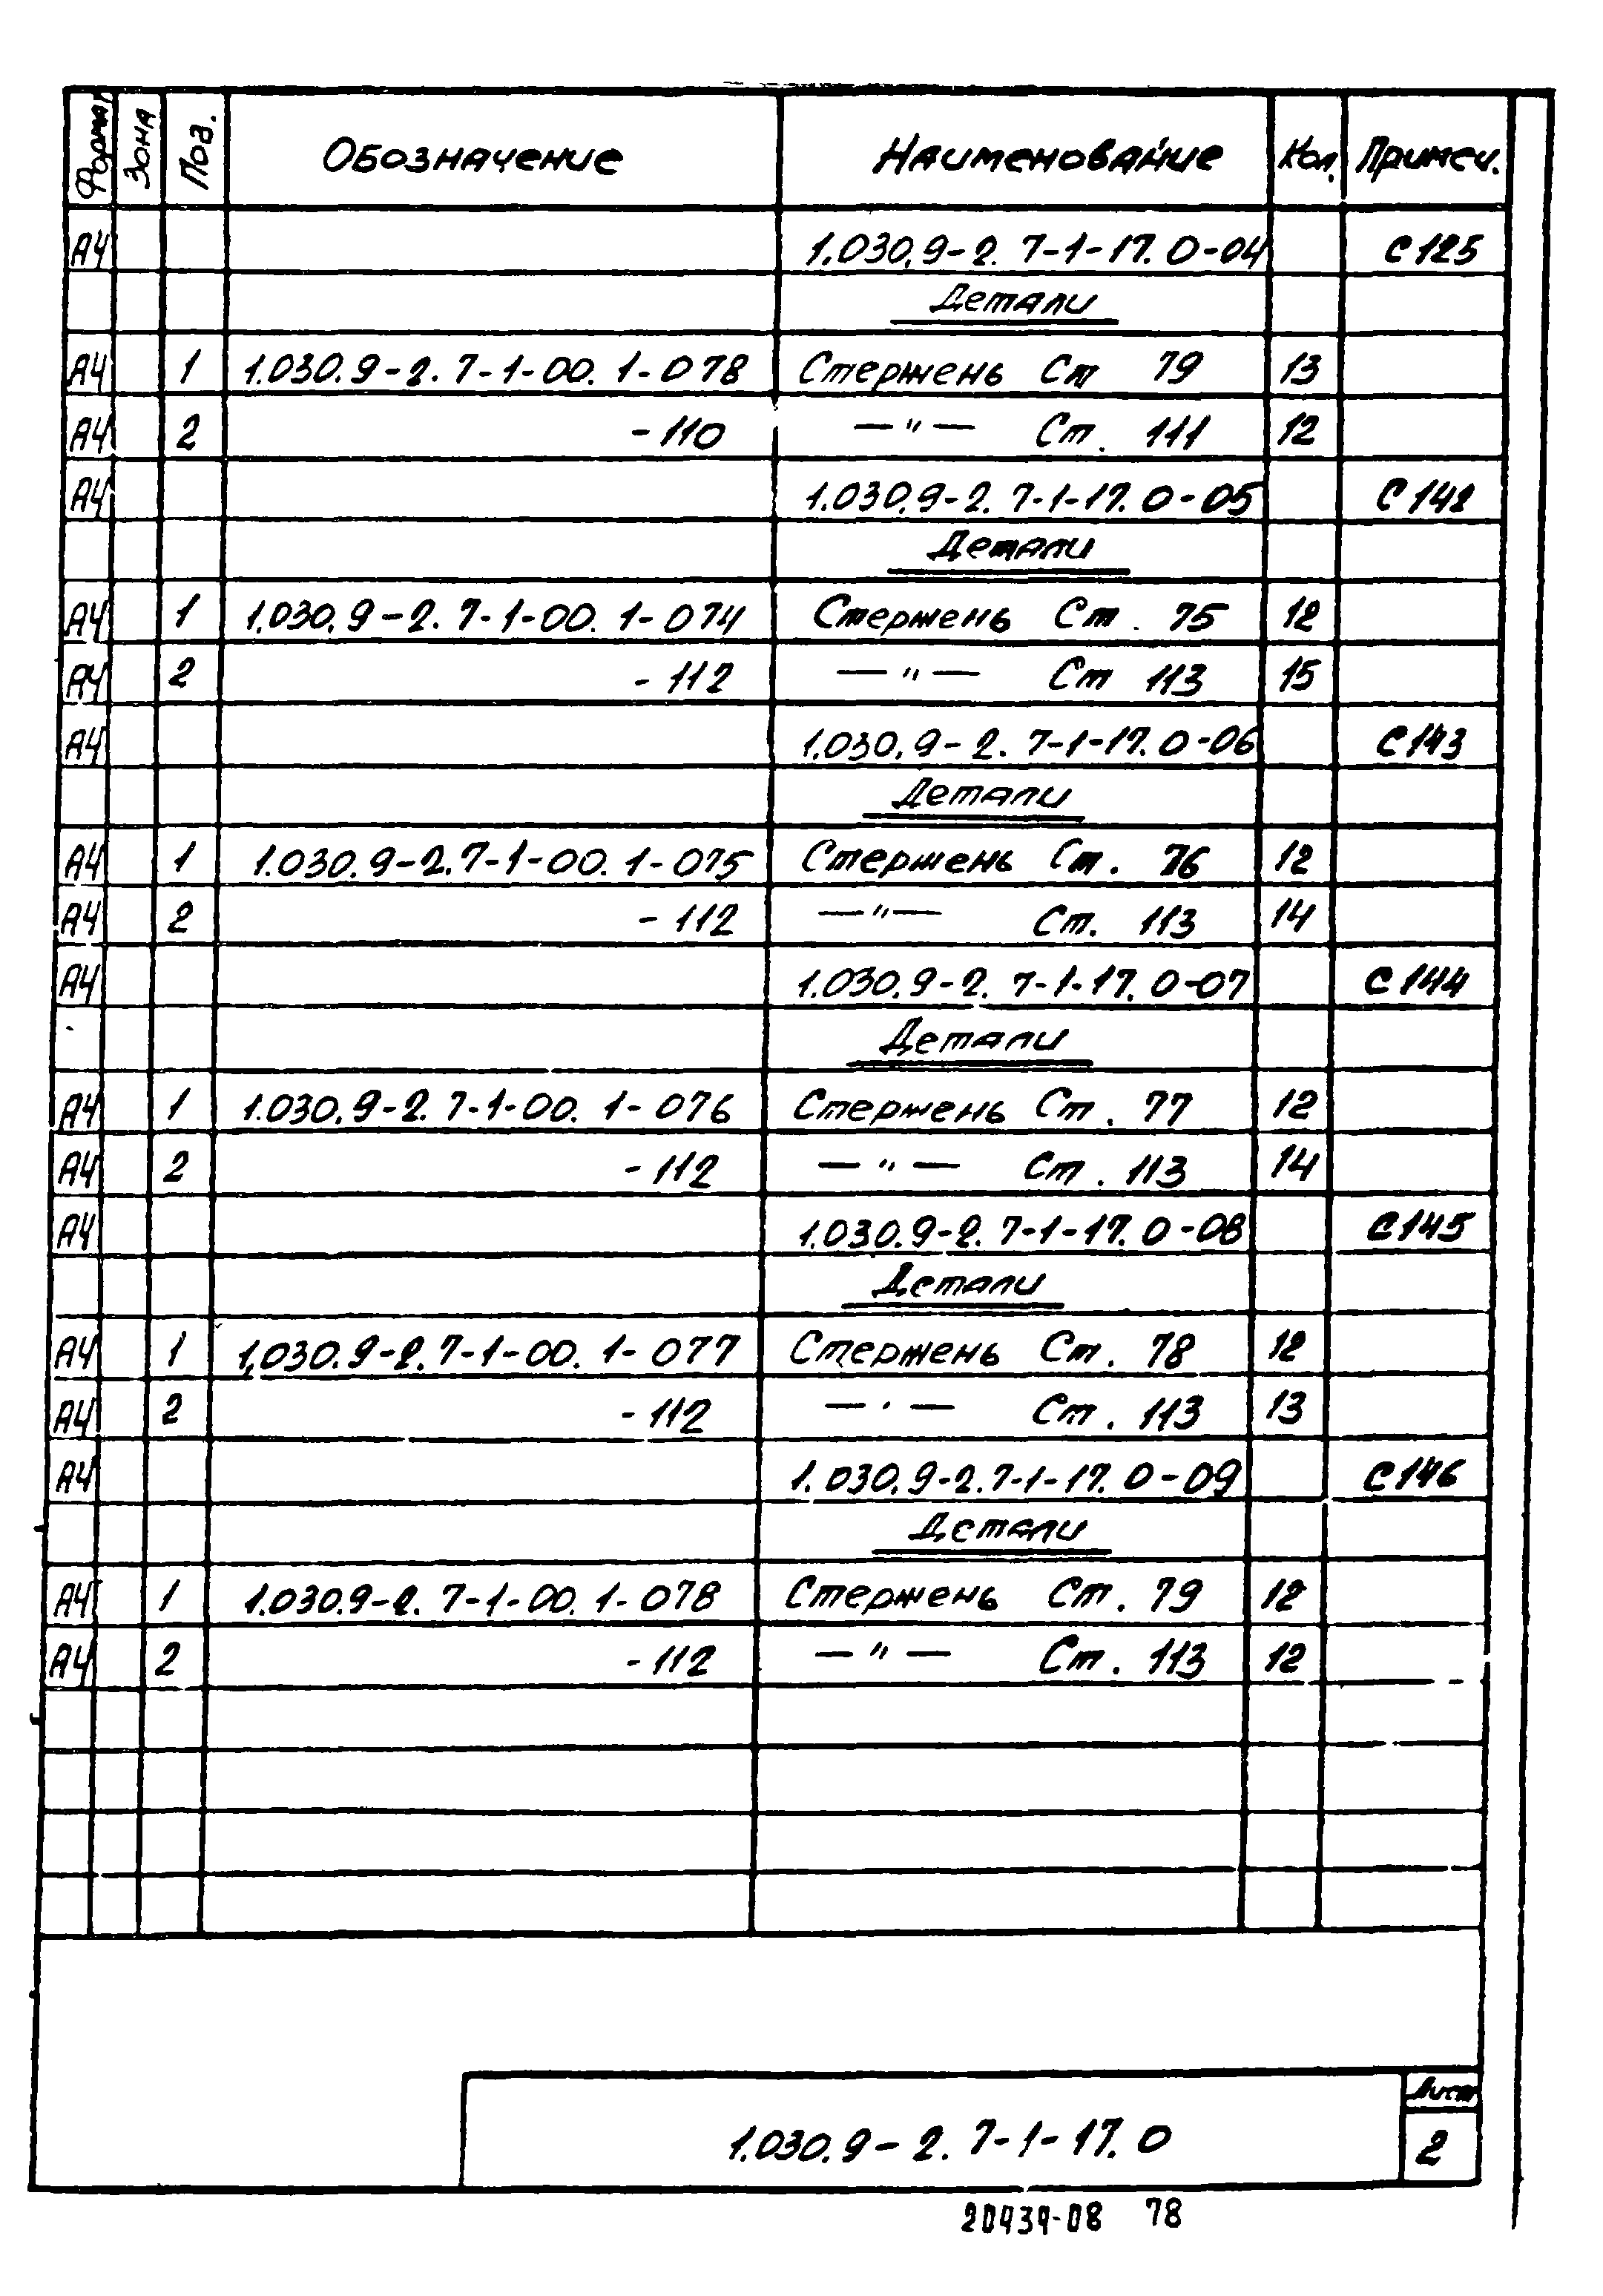 Формат Зона Поз. Обозначение Наименование Кол. Примеч.
А4 1.030.9-2. 7-1-17. 0-04 С125
Детали
А4 1 1.030.9-2. 7-1-00. 1-078 Стержень Ст 79 13
А4 2 -110 — " — Ст. 111 12
А4 1.030.9-2. 7-1-17. 0-05 С142
Детали
А4 1 1.030.9-2. 7-1-00. 1-074 Стержень Ст. 75 12
А4 2 -112 — " — Ст 113 15
А4 1.030.9-2. 7-1-17. 0-06 С143
Детали
А4 1 1.030.9-2. 7-1-00. 1-075 Стержень Ст. 76 12
А4 2 -112 — " — Ст. 113 14
А4 1.030.9-2. 7-1-17. 0-07 С144
Детали
А4 1 1.030.9-2. 7-1-00. 1-076 Стержень Ст. 77 12
А4 2 -112 — " — Ст. 113 14
А4 1.030.9-2. 7-1-17. 0-08 С145
Детали
А4 1 1.030.9-2. 7-1-00. 1-077 Стержень Ст. 78 12
А4 2 -112 — " — Ст. 113 13
А4 1.030.9-2. 7-1-17. 0-09 С146
Детали
А4 1 1.030.9-2. 7-1-00. 1-078 Стержень Ст. 79 12
А4 2 -112 — " — Ст. 113 12
Лист
1.030.9-2. 7-1-17. 0 2
20434-08 78